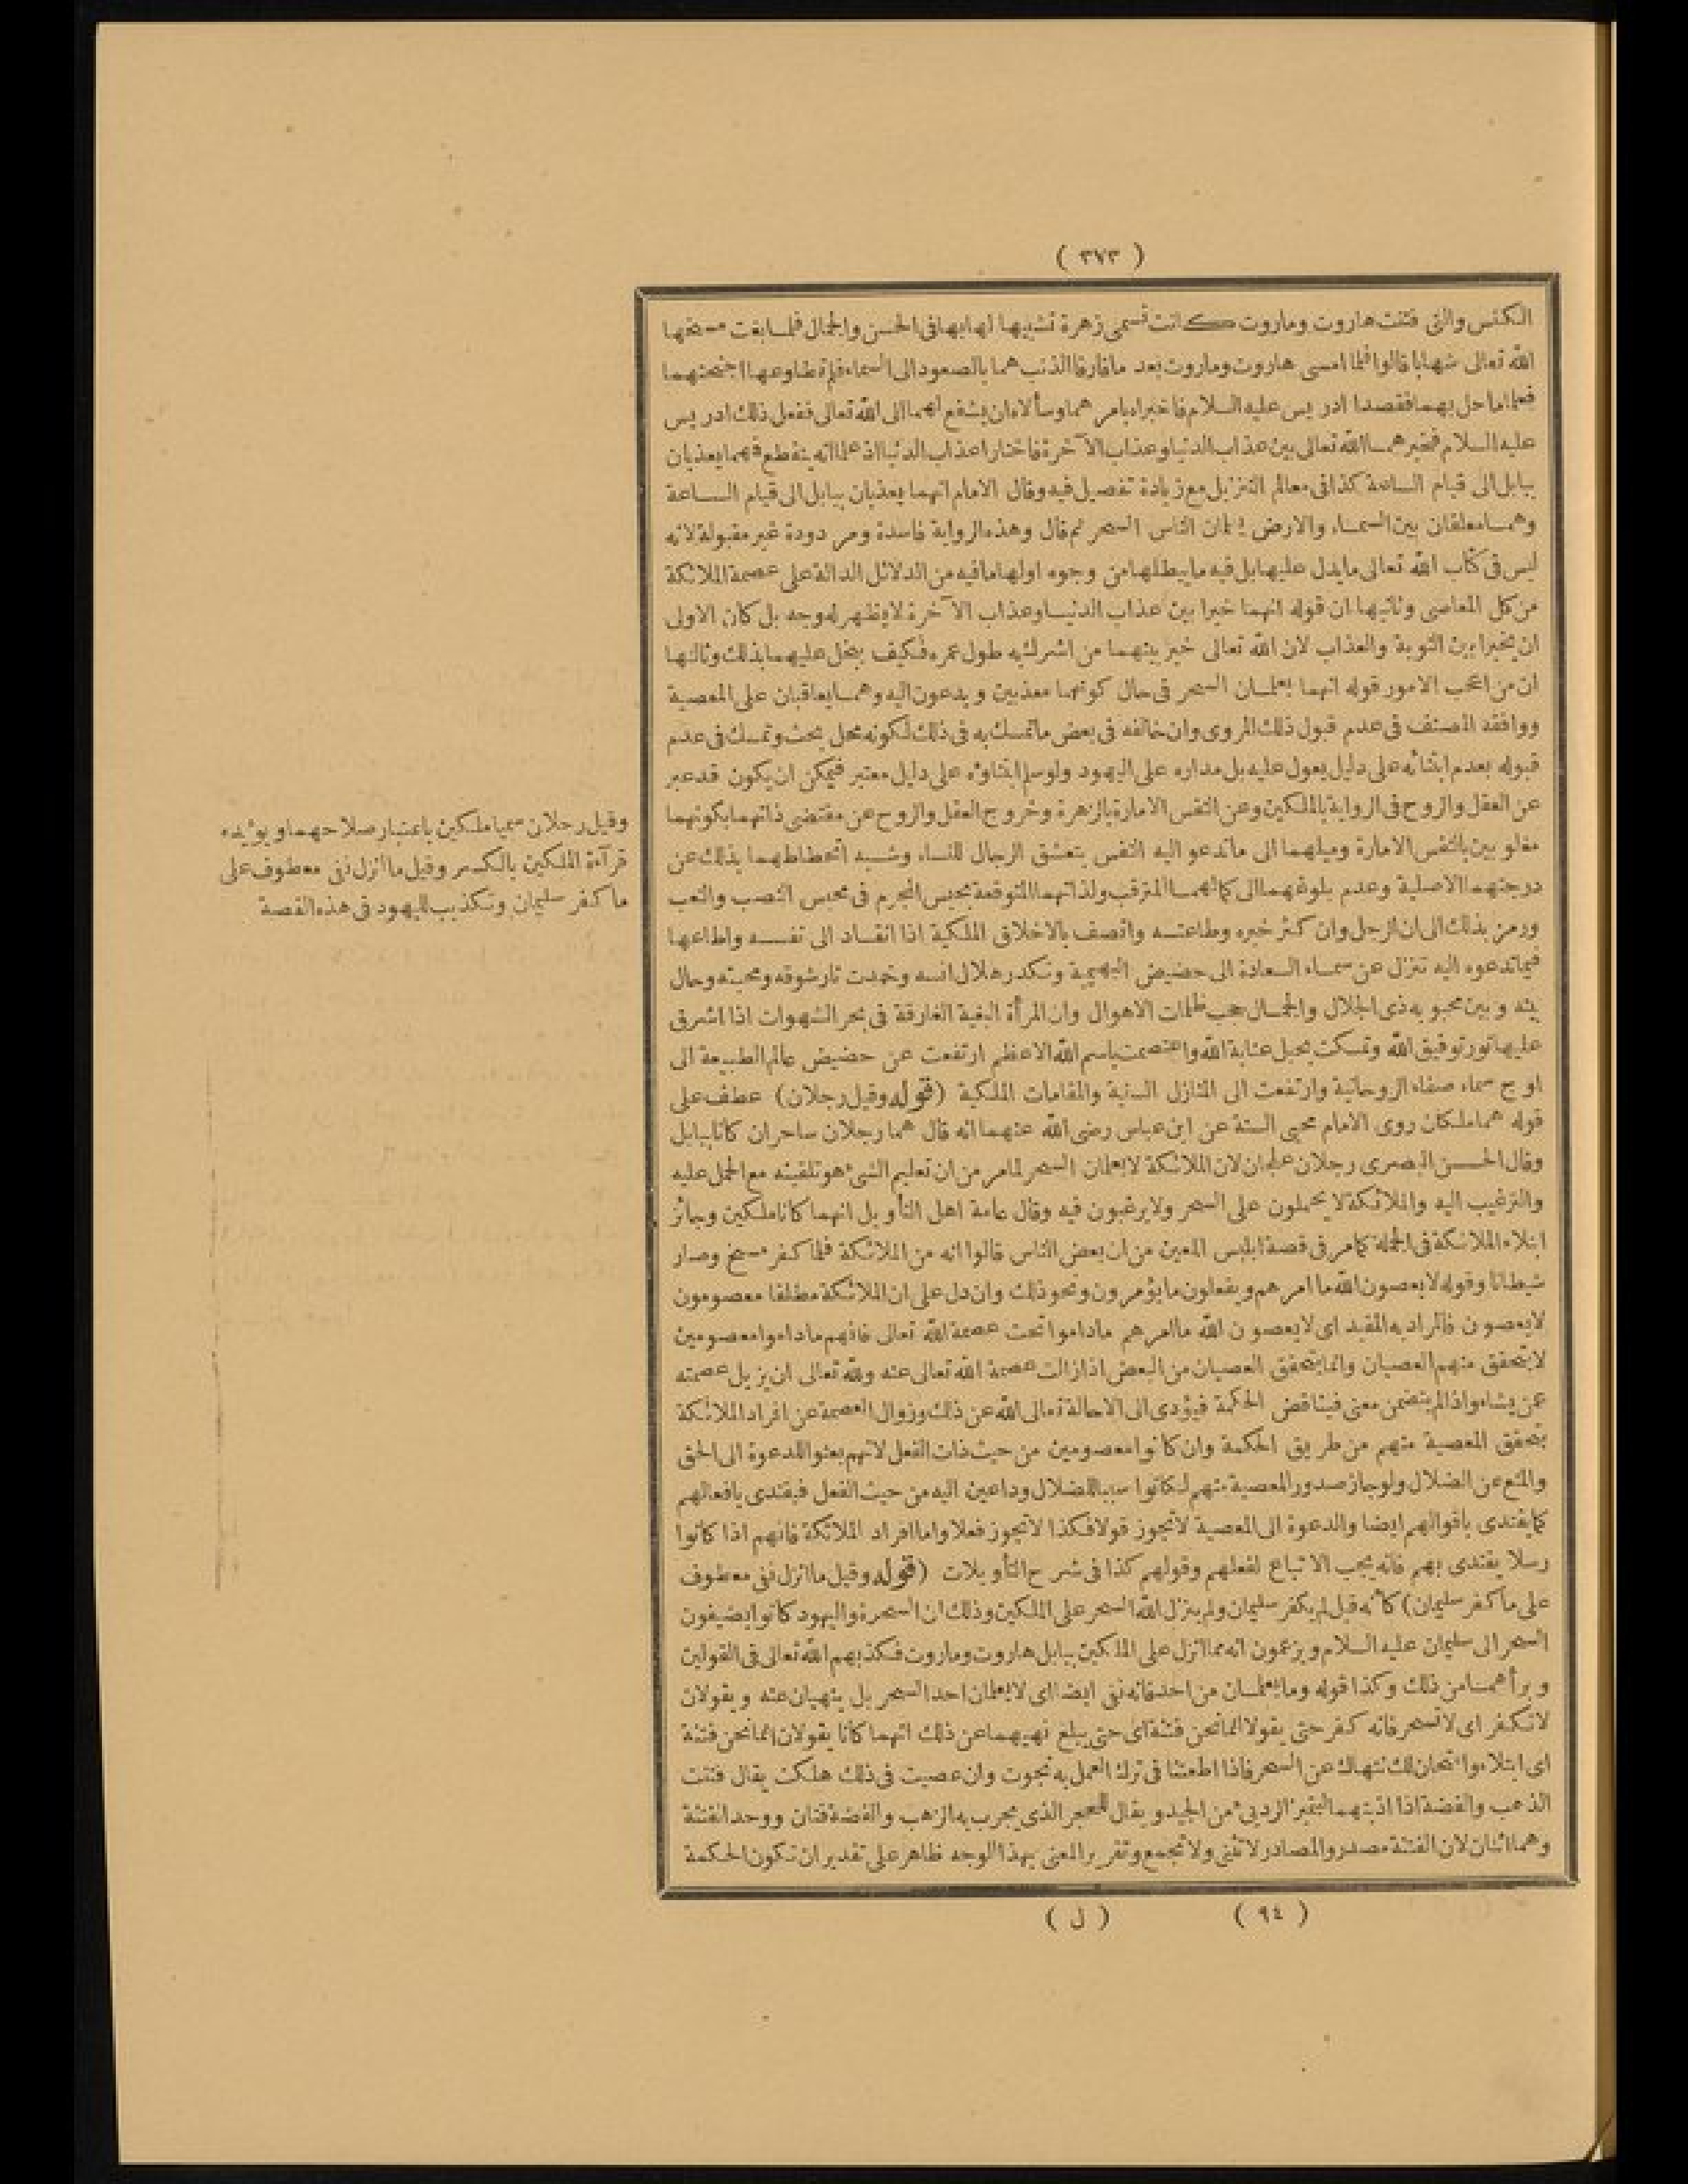 ( ٣٧٣ )
الكنس والتى فتنت هاروت وماروت كانت تسمى زهرة تشبيها لها بها فى الحسن والجمال فلما بغت مسخها
الله تعالى شهابا قالوا فلما امسى هاروت وماروت بعد ما قارفا الذنب هما بالصعود الى السماء فلم تطاوعهما اجنحتهما
فعلما ما حل بهما فقصدا ادريس عليه السلام فاخبراه بامرهما وسألاه ان يشفع لهما الى الله تعالى ففعل ذلك ادريس
عليه السلام فخيرهما الله تعالى بين عذاب الدنيا وعذاب الآخرة فاختارا عذاب الدنيا اذ علما انه ينقطع فهما يعذبان
ببابل الى قيام الساعة كذا فى معالم التنزيل مع زيادة تفصيل فيه وقال الامام انهما يعذبان ببابل الى قيام الساعة
وهما معلقان بين السماء والارض يعلمان الناس السحر ثم قال وهذه الرواية فاسدة ومردودة غير مقبولة لانه
ليس فى كتاب الله تعالى ما يدل عليها بل فيه ما يبطلها من وجوه اولها ما فيه من الدلائل الدالة على عصمة الملائكة
من كل المعاصى وثانيها ان قوله انهما خيرا بين عذاب الدنيا وعذاب الآخرة لا يظهر له وجه بل كان الاولى
ان يخيرا بين التوبة والعذاب لان الله تعالى خير بينهما من اشرك به طول عمره فكيف يبخل عليهما بذلك وثالثها
ان من اعجب الامور قوله انهما يعلمان السحر فى حال كونهما معذبين ويدعون اليه وهما يعاقبان على المعصية
ووافقه المصنف فى عدم قبول ذلك المروى وان خالفه فى بعض ما تمسك به فى ذلك لكونه محل بحث وتمسك فى عدم
قبوله بعدم ابتنائه على دليل يعول عليه بل مداره على اليهود ولو سلم ابتناؤه على دليل معتبر فيمكن ان يكون قد عبر
عن العقل والروح فى الرواية بالملكين وعن النفس الامارة بالزهرة وخروج العقل والروح عن مقتضى ذاتهما بكونهما
مغلوبين بالنفس الامارة وميلهما الى ما تدعو اليه النفس بتعشق الرجال للنساء وشبه انحطاطهما بذلك عن
درجتهما الاصلية وعدم بلوغهما الى كمالهما المترقب ولذاتهما المتوقعة بحبس المجرم فى محبس النصب والتعب
ورمز بذلك الى ان الرجل وان كثر خيره وطاعته واتصف بالاخلاق الملكية اذا انقاد الى نفسه واطاعها
فيما تدعوه اليه تنزل عن سماء السعادة الى حضيض البهيمية وتكدر هلال انسه وخمدت نار شوقه ومحبته وحال
بينه وبين محبوبه ذى الجلال والجمال حجب ظلمات الاهوال وان المرأة البغية الغارقة فى بحر الشهوات اذا اشرق
عليها نور توفيق الله وتمسكت بحبل عناية الله واعتصمت باسم الله الاعظم ارتفعت عن حضيض عالم الطبيعة الى
اوج سماء صفاء الروحانية وارتفعت الى المنازل السنية والمقامات الملكية (قوله وقيل رجلان) عطف على
قوله هما ملكان روى الامام محيى السنة عن ابن عباس رضى الله عنهما انه قال هما رجلان ساحران كانا ببابل
وقال الحسن البصرى رجلان علجان لان الملائكة لا يعلمان السحر لما مر من ان تعليم الشئ هو تلقينه مع الحمل عليه
والترغيب اليه والملائكة لا يحملون على السحر ولا يرغبون فيه وقال عامة اهل التأويل انهما كانا ملكين وجائز
ابتلاء الملائكة فى الجملة كما مر فى قصة ابليس اللعين من ان بعض الناس قالوا انه من الملائكة فلما كفر مسخ وصار
شيطانا وقوله لا يعصون الله ما امرهم ويفعلون ما يؤمرون ونحو ذلك وان دل على ان الملائكة مطلقا معصومون
لا يعصون فالمراد به المقيد اى لا يعصون الله ما امرهم ما داموا تحت عصمة الله تعالى فانهم ما داموا معصومين
لا يتحقق منهم العصيان وانما يتحقق العصيان من البعض اذا زالت عصمة الله تعالى عنه ولله تعالى ان يزيل عصمته
عمن يشاء واذا لم يتضمن معنى فيناقض الحكمة فيؤدى الى الاحالة تعالى الله عن ذلك وزوال العصمة عن افراد الملائكة
بتحقق المعصية منهم من طريق الحكمة وان كانوا معصومين من حيث ذات الفعل لانهم بعثوا للدعوة الى الحق
والمنع عن الضلال ولو جاز صدور المعصية منهم لكانوا سببا للضلال وداعين اليه من حيث الفعل فيقتدى بافعالهم
كما يقتدى باقوالهم ايضا والدعوة الى المعصية لا تجوز قولا فكذا لا تجوز فعلا واما افراد الملائكة فانهم اذا كانوا
رسلا يقتدى بهم فانه يجب الاتباع لفعلهم وقولهم كذا فى شرح التأويلات (قوله وقيل ما انزل نفى معطوف
على ما كفر سليمان) كأنه قيل لم يكفر سليمان ولم ينزل الله السحر على الملكين وذلك ان السحرة واليهود كانوا يضيفون
السحر الى سليمان عليه السلام ويزعمون انه مما انزل على الملكين ببابل هاروت وماروت فكذبهم الله تعالى فى القولين
وبرأهما من ذلك وكذا قوله وما يعلمان من احد فانه نفى ايضا اى لا يعلمان احدا السحر بل ينهيان عنه ويقولان
لا تكفر اى لا تسحر فانه كفر حتى يقولا انما نحن فتنة اى حتى يبلغ نهيهما عن ذلك انهما كانا يقولان انما نحن فتنة
اى ابتلاء وامتحان لك ننهاك عن السحر فاذا اطعتنا فى ترك العمل به نجوت وان عصيت فى ذلك هلكت يقال فتنت
الذهب والفضة اذا اذبتهما لتميز الردئ من الجيد ويقال للحجر الذى يجرب به الذهب والفضة فتان ووحد الفتنة
وهما اثنان لان الفتنة مصدر والمصادر لا تثنى ولا تجمع وتقرير المعنى بهذا الوجه ظاهر على تقدير ان تكون الحكمة
وقيل رجلان سميا ملكين باعتبار صلاحهما ويؤيده
قرآءة الملكين بالكسر وقيل ما انزل نفى معطوف على
ما كفر سليمان وتكذيب لليهود فى هذه القصة
( ٩٤ ) ( ل )